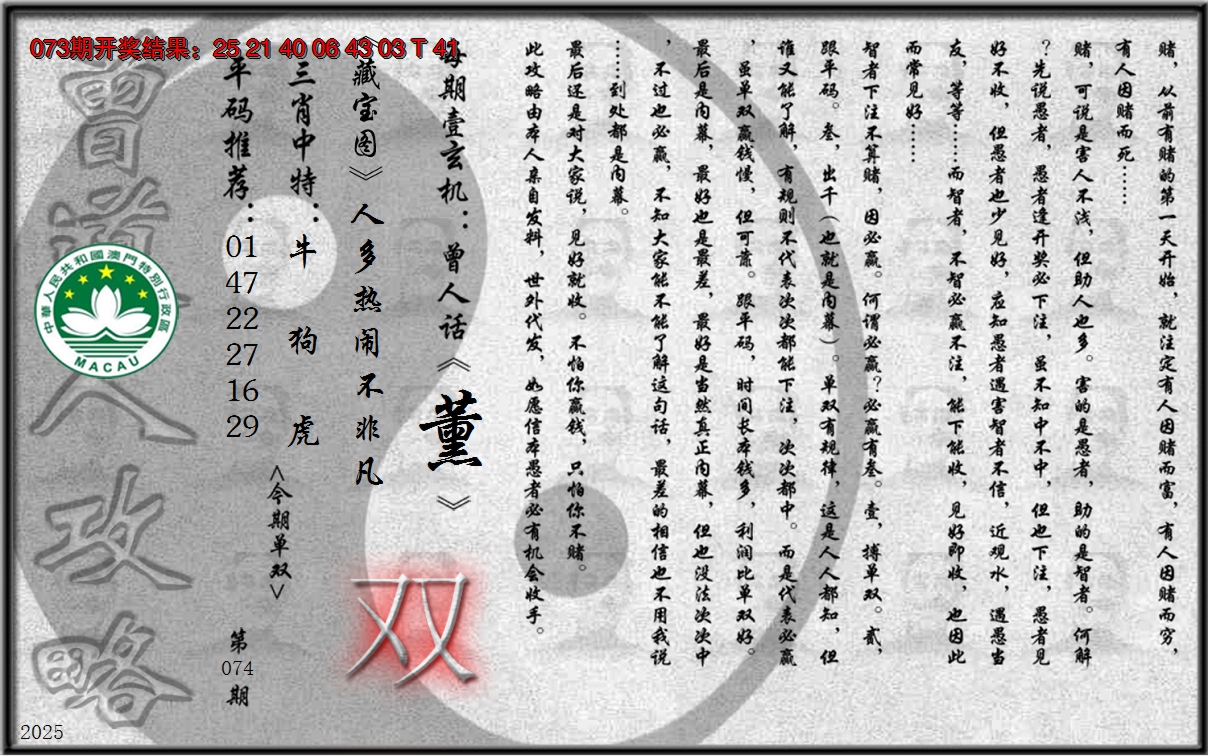 073期开奖结果：25 21 40 06 43 03 T 41
赌，从前有赌的第一天开始，就注定有人因赌而富，有人因赌而穷，
有人因赌而死……
赌，可说是害人不浅，但助人也多。害的是愚者，助的是智者。何解
？先说愚者，愚者逢开奖必下注，虽不知中不中，但也下注，愚者见
好不收，但愚者也少见好，应知愚者遇害智者不信，近观水，遇愚当
友，等等……而智者，不智必赢不注，能下能收，见好即收，也因此
而常见好……
智者下注不算赌，因必赢。何谓必赢？必赢有叁。壹，搏单双。贰，
跟平码。叁，出千（也就是内幕）。单双有规律，这是人人都知，但
谁又能了解，有规则不代表次次都能下注，次次都中。而是代表必赢
，虽单双赢钱慢，但可靠。跟平码，时间长本钱多，利润比单双好。
最后是内幕，最好也是最差，最好是当然真正内幕，但也没法次次中
，不过也必赢，不知大家能不能了解这句话，最差的相信也不用我说
……到处都是内幕。
最后还是对大家说，见好就收。不怕你赢钱，只怕你不赌。
此攻略由本人亲自发料，世外代发，如愿信本愚者必有机会收手。
每期壹玄机：曾人话《薰》
《藏宝图》人多热闹不非凡
双
三肖中特：牛 狗 虎
<今期单双>
平码推荐：01 47 22 27 16 29
第074期
曾道人攻略
中華人民共和國澳門特別行政區
MACAU
2025